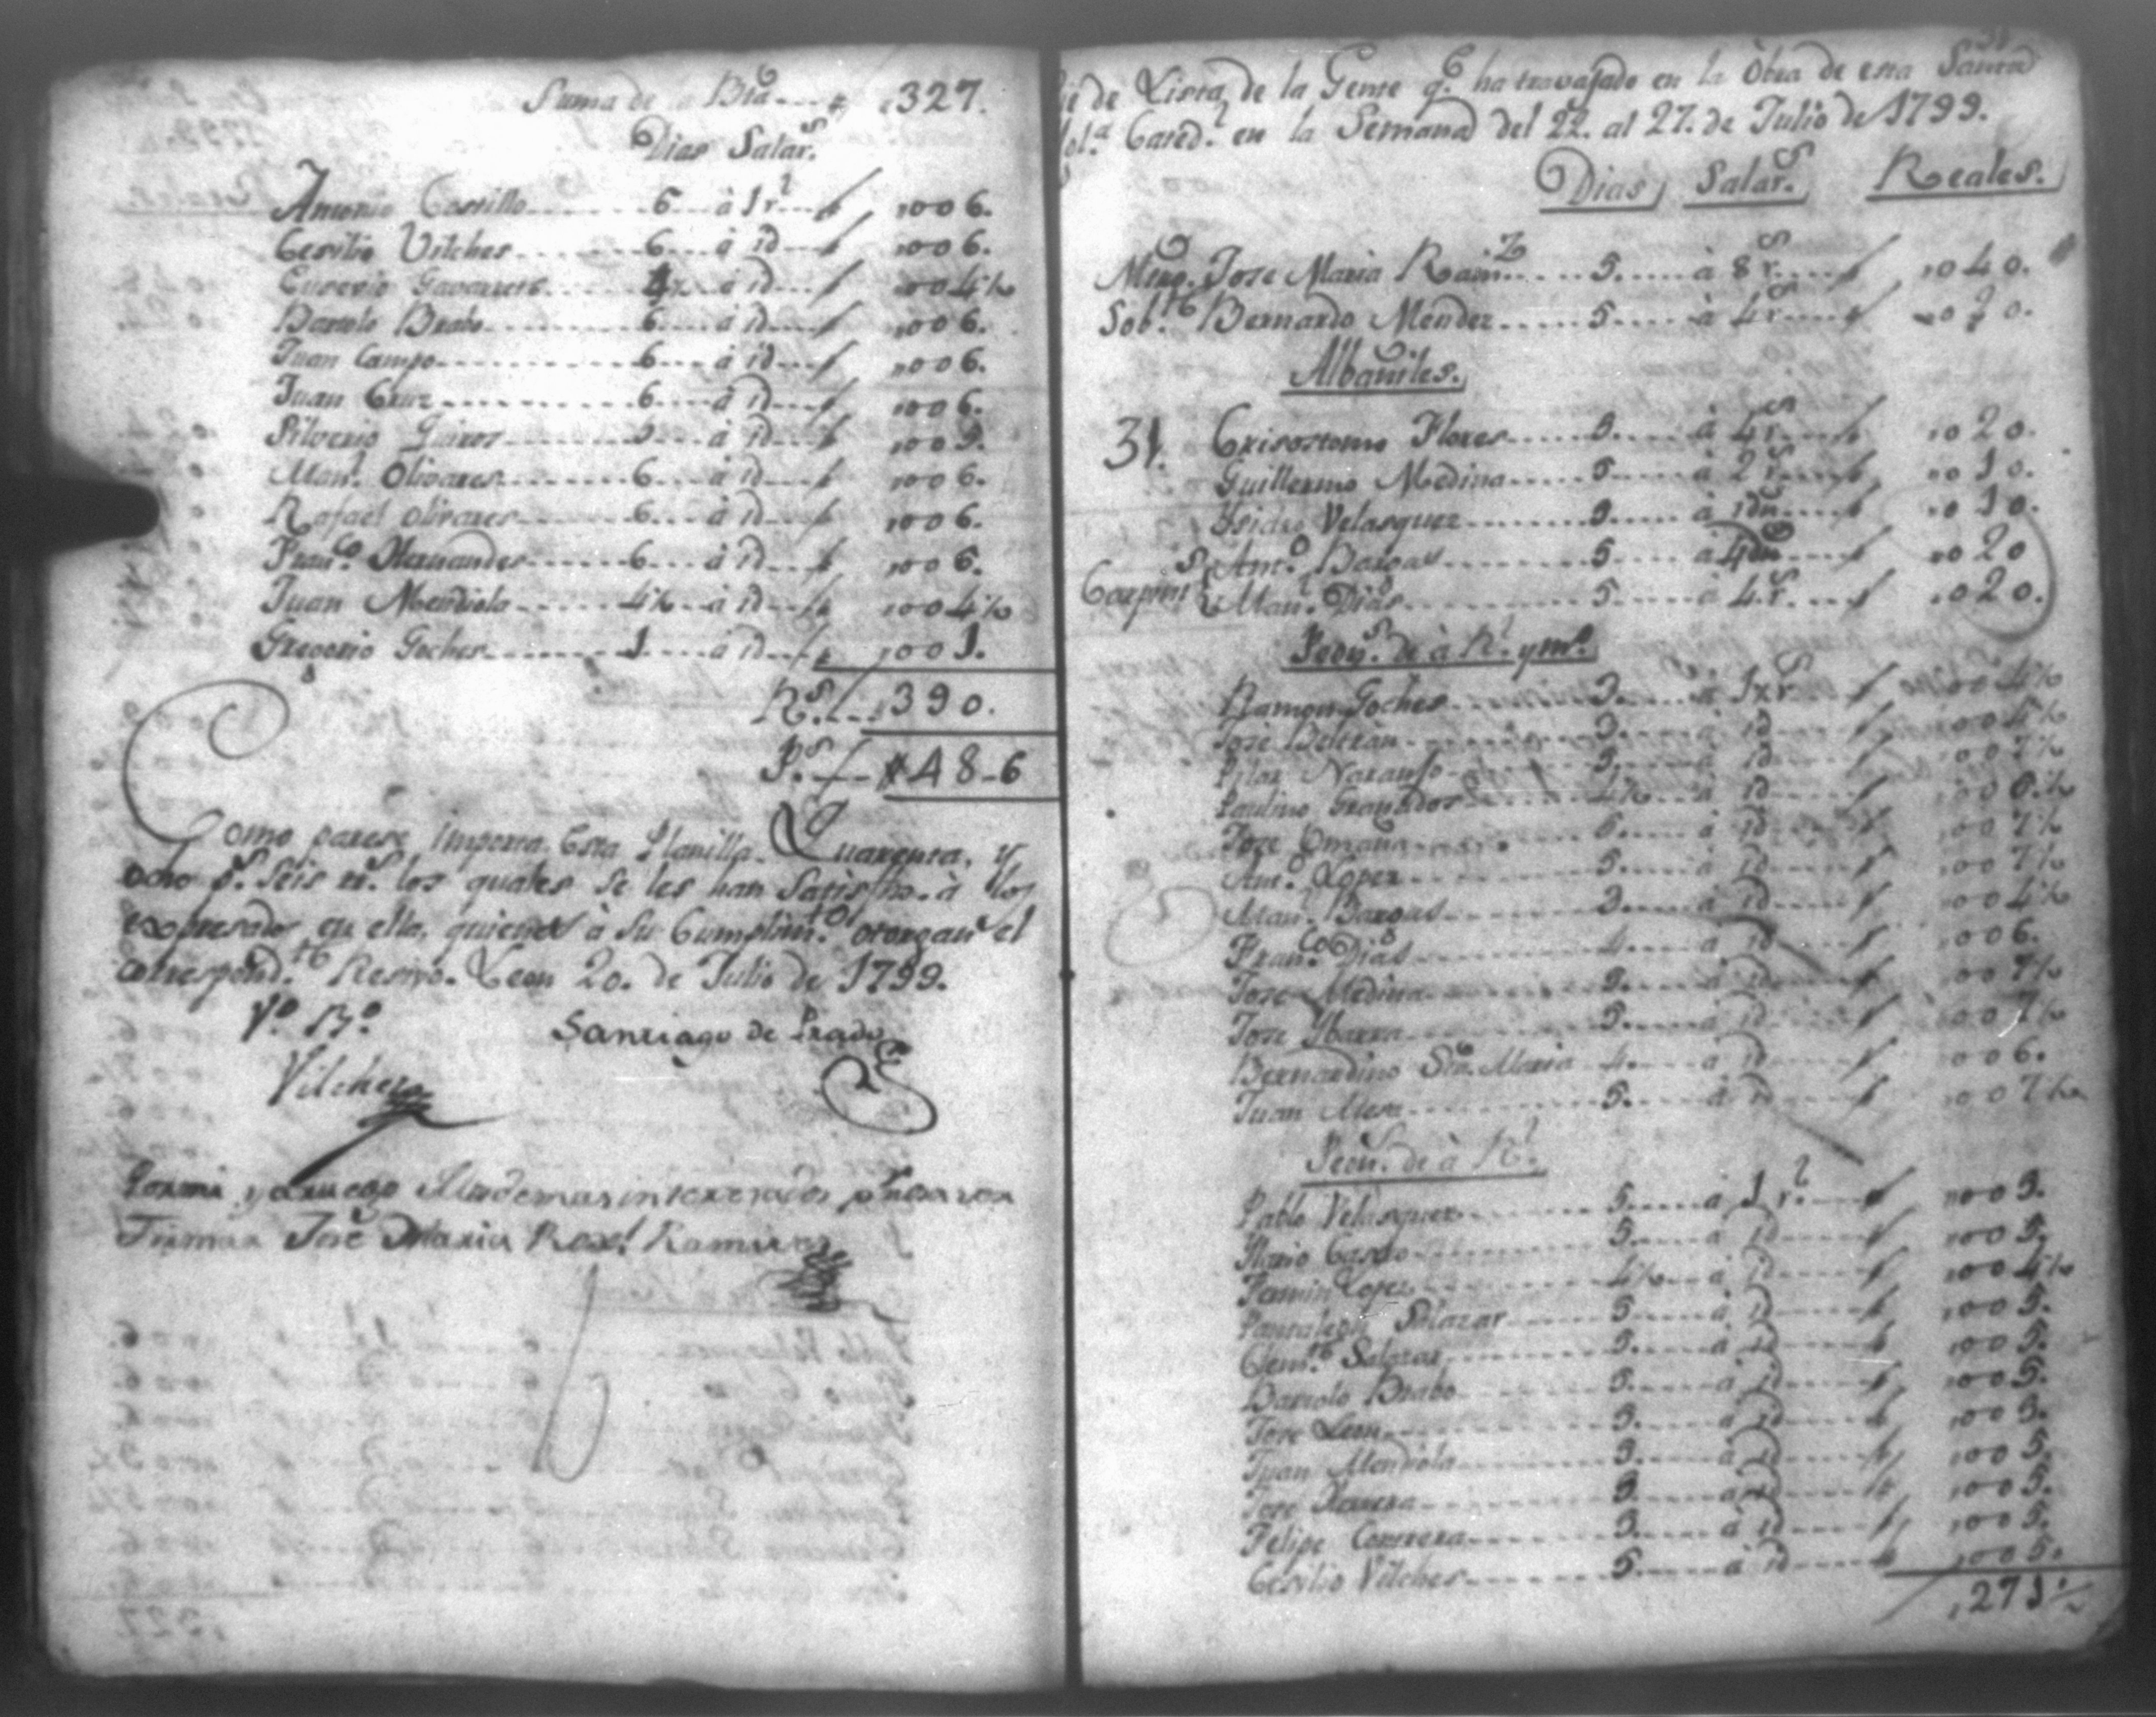 Suma de la Bta.... 327.
Dias Salar.s
Antonio Castillo...... 6... à 1 r.l... 006.
Cesilio Vilches...... 6... à id... 006.
Eusevio Gavarrete... 4½ à id... 004½
Bartolo Brabo...... 6... à id... 006.
Juan Campo...... 6... à id... 006.
Juan Cruz...... 6... à id... 006.
Silverio Quiros...... 5... à id... 005.
Man.l Olivares...... 6... à id... 006.
Rafael Olivares...... 6... à id... 006.
Fran.co Hernandes...... 6... à id... 006.
Juan Mendiola...... 4½... à id... 004½
Gregorio Goches...... 1... à id... 001.
R.s... 390.
P.s... 48-6
Como parese importa Esta Planilla Quarenta, y
ocho p.s seis rr.s los quales se les han Satisfho. à los
expresados en ella, quienes à su Cumplim.to otorgan el
correspond.te Resivo. Leon 20. de Julio de 1799.
V.o B.o
Santiago de Prado
Vilches
Por mi y aruego de los demas interezados p.r no saver
Firmar José Maria Ramires
de Lista de la Gente q.e ha travajado en la Obra de esta Santa
Cated.l en la Semana del 22. al 27. de Julio de 1799.
Dias Salar.s Reales.
Mtro. Jose Maria Ram.z.... 5.... à 8 r.s... 040.
Sob.te Bernardo Mendez.... 5.... à 4 r.s... 020.
Albañiles.
31. Crisostomo Flores.... 5.... à 4 r.s... 020.
Guillermo Medina.... 5.... à 2 r.s... 010.
Ysidro Velasquez.... 5.... à idn... 010.
Carpint.s Ant.o Bargas.... 5.... à 4 ... 020
Man.l Dias.... 5.... à 4 r.s... 020.
Peon.s de à R.l y m.o
Ramon Goches.... 3.... à 1½ r.s... 004½
Jose Beltran.... 3.... à id... 004½
Pilar Naranjo.... 5.... à id... 007½
Paulino Granados.... 4½... à id... 006¾
Jose Omaña.... 5.... à id... 007½
Ant.o Lopez.... 5.... à id... 007½
Man.l Bargas.... 3.... à id... 004½
Fran.co Dias.... 4.... à id... 006.
Jose Medina.... 5.... à id... 007½
Jose Ybarra.... 5.... à id... 007½
Bernardino Sta. Maria 4.... à id... 006.
Juan Mesa.... 5.... à id... 007½
Peon.s de à R.l
Pablo Velasquez.... 5.... à 1 r.l... 005.
Ylario Castro.... 5.... à id... 005.
Fermin Lopez.... 4½... à id... 004½
Pantaleon Salazar.... 5.... à id... 005.
Clem.te Salazar.... 5.... à id... 005.
Bartolo Brabo.... 5.... à id... 005.
Jose Leon.... 5.... à id... 005.
Juan Mendiola.... 5.... à id... 005.
Jose Herrera.... 5.... à id... 005.
Felipe Contrera.... 5.... à id... 005.
Cesilio Vilches.... 5.... à id... 005.
271